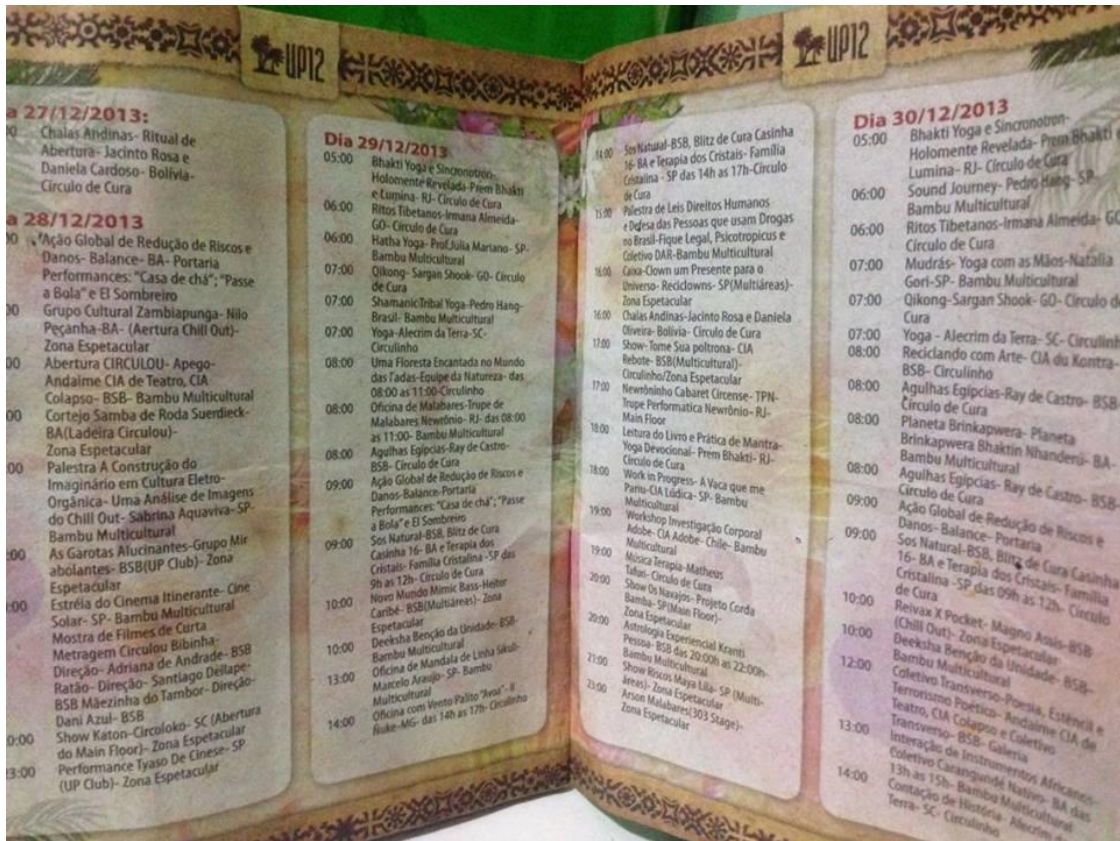 UP12
27/12/2013:
Chalas Andinas- Ritual de
Abertura- Jacinto Rosa e
Daniela Cardoso- Bolívia-
Círculo de Cura
28/12/2013
Ação Global de Redução de Riscos e
Danos- Balance- BA- Portaria
Performances: "Casa de chá"; "Passe
a Bola" e El Sombreiro
Grupo Cultural Zambiapunga- Nilo
Peçanha-BA- (Aertura Chill Out)-
Zona Espetacular
Abertura CIRCULOU- Apego-
Andaime CIA de Teatro, CIA
Colapso- BSB- Bambu Multicultural
Cortejo Samba de Roda Suerdieck-
BA(Ladeira Circulou)-
Zona Espetacular
Palestra A Construção do
Imaginário em Cultura Eletro-
Orgânica- Uma Análise de Imagens
do Chill Out- Sabrina Aquaviva-SP-
Bambu Multicultural
As Garotas Alucinantes-Grupo Mir
abolantes- BSB(UP Club)- Zona
Espetacular
Estréia do Cinema Itinerante- Cine
Solar- SP- Bambu Multicultural
Mostra de Filmes de Curta
Metragem Circulou Bibinha-
Direção- Adriana de Andrade- BSB
Ratão- Direção- Santiago Dellape-
BSB Mãezinha do Tambor- Direção-
Dani Azul- BSB
Show Katon-Circoloko- SC (Abertura
do Main Floor)- Zona Espetacular
Performance Tyaso De Cinese- SP
(UP Club)- Zona Espetacular
Dia 29/12/2013
05:00 Bhakti Yoga e Sincronotron-
Holomente Revelada-Prem Bhakti
e Lumina- RJ- Círculo de Cura
06:00 Ritos Tibetanos-Irmana Almeida-
GO- Círculo de Cura
06:00 Hatha Yoga- Prof.Julia Mariano- SP-
Bambu Multicultural
07:00 Qikong- Sargan Shook- GO- Círculo
de Cura
07:00 ShamanicTribal Yoga-Pedro Hang-
Brasil- Bambu Multicultural
07:00 Yoga-Alecrim da Terra-SC-
Circulinho
08:00 Uma Floresta Encantada no Mundo
das Fadas-Equipe da Natureza- das
08:00 as 11:00-Circulinho
08:00 Oficina de Malabares-Trupe de
Malabares Newrônio- RJ- das 08:00
as 11:00- Bambu Multicultural
08:00 Agulhas Egípcias-Ray de Castro-
BSB- Círculo de Cura
09:00 Ação Global de Redução de Riscos e
Danos-Balance-Portaria
Performances: "Casa de chá"; "Passe
a Bola" e El Sombreiro
09:00 Sos Natural-BSB, Blitz de Cura
Casinha 16- BA e Terapia dos
Cristais- Família Cristalina -SP das
9h as 12h- Círculo de Cura
10:00 Novo Mundo Mimic Bass-Heitor
Caribé- BSB(Multiáreas)- Zona
Espetacular
10:00 Deeksha Benção da Unidade- BSB-
Bambu Multicultural
13:00 Oficina de Mandala de Linha Sikuli-
Marcelo Araujo- SP- Bambu
Multicultural
14:00 Oficina com Vento Palito "Avoa"- Il
Ñuke-MG- das 14h as 17h- Circulinho
UP12
14:00 Sos Natural-BSB, Blitz de Cura Casinha
16- BA e Terapia dos Cristais- Família
Cristalina - SP das 14h as 17h-Círculo
de Cura
15:00 Palestra de Leis Direitos Humanos
e Defesa das Pessoas que usam Drogas
no Brasil-Fique Legal, Psicotropicus e
Coletivo DAR-Bambu Multicultural
16:00 Caixa-Clown um Presente para o
Universo- Reciclowns- SP(Multiáreas)-
Zona Espetacular
16:00 Chalas Andinas-Jacinto Rosa e Daniela
Oliveira- Bolívia- Círculo de Cura
17:00 Show- Tome Sua poltrona- CIA
Rebote- BSB(Multicultural)-
Circulinho/Zona Espetacular
17:00 Newrôninho Cabaret Circense- TPN-
Trupe Performatica Newrônio- RJ-
Main Floor
18:00 Leitura do Livro e Prática de Mantra-
Yoga Devocional- Prem Bhakti- RJ-
Círculo de Cura
18:00 Work in Progress- A Vaca que me
Pariu-CIA Lúdica- SP- Bambu
Multicultural
19:00 Workshop Investigação Corporal
Adobe- CIA Adobe- Chile- Bambu
Multicultural
19:00 Música Terapia-Matheus
Tafuri- Círculo de Cura
20:00 Show Os Navajos- Projeto Corda
Bamba- SP(Main Floor)-
Zona Espetacular
20:00 Astrologia Experiencial Kranti
Pessoa- BSB das 20:00h as 22:00h-
Bambu Multicultural
21:00 Show Riscos Maya Lila- SP (Multi-
áreas)- Zona Espetacular
23:00 Arson Malabares(303 Stage)-
Zona Espetacular
Dia 30/12/2013
05:00 Bhakti Yoga e Sincronotron-
Holomente Revelada- Prem Bhakti
Lumina- RJ- Círculo de Cura
06:00 Sound Journey- Pedro Hang- SP-
Bambu Multicultural
06:00 Ritos Tibetanos-Irmana Almeida-
Círculo de Cura
07:00 Mudrás- Yoga com as Mãos-Natália
Gori-SP- Bambu Multicultural
07:00 Qikong-Sargan Shook- GO- Círculo
Cura
07:00 Yoga - Alecrim da Terra- SC- Circulinh
08:00 Reciclando com Arte- CIA du Kontra-
BSB- Circulinho
08:00 Agulhas Egípcias-Ray de Castro- BSB-
Círculo de Cura
08:00 Planeta Brinkapwera- Planeta
Brinkapwera Bhaktin Nhandeni- BA-
Bambu Multicultural
08:00 Agulhas Egípcias- Ray de Castro- BSB
Círculo de Cura
09:00 Ação Global de Redução de Riscos e
Danos- Balance- Portaria
09:00 Sos Natural-BSB, Blitz de Cura Casinha
16- BA e Terapia dos Cristais- Família
Cristalina -SP das 09h as 12h- Círculo
de Cura
10:00 Reivax X Pocket- Magno Assis-BSB
(Chill Out)- Zona Espetacular
10:00 Deeksha Benção da Unidade- BSB-
Bambu Multicultural
12:00 Coletivo Transverso-Poesia, Estêncil e
Terrorismo Poético- Andaime CIA de
Teatro, CIA Colapso e Coletivo
Transverso- BSB- Galeria
13:00 Interação de Instrumentos Africanos-
Coletivo Carangundé Nativo- BA das
13h as 15h- Bambu Multicultural
14:00 Contação de História- Alecrim
Terra- SC- Circulinho